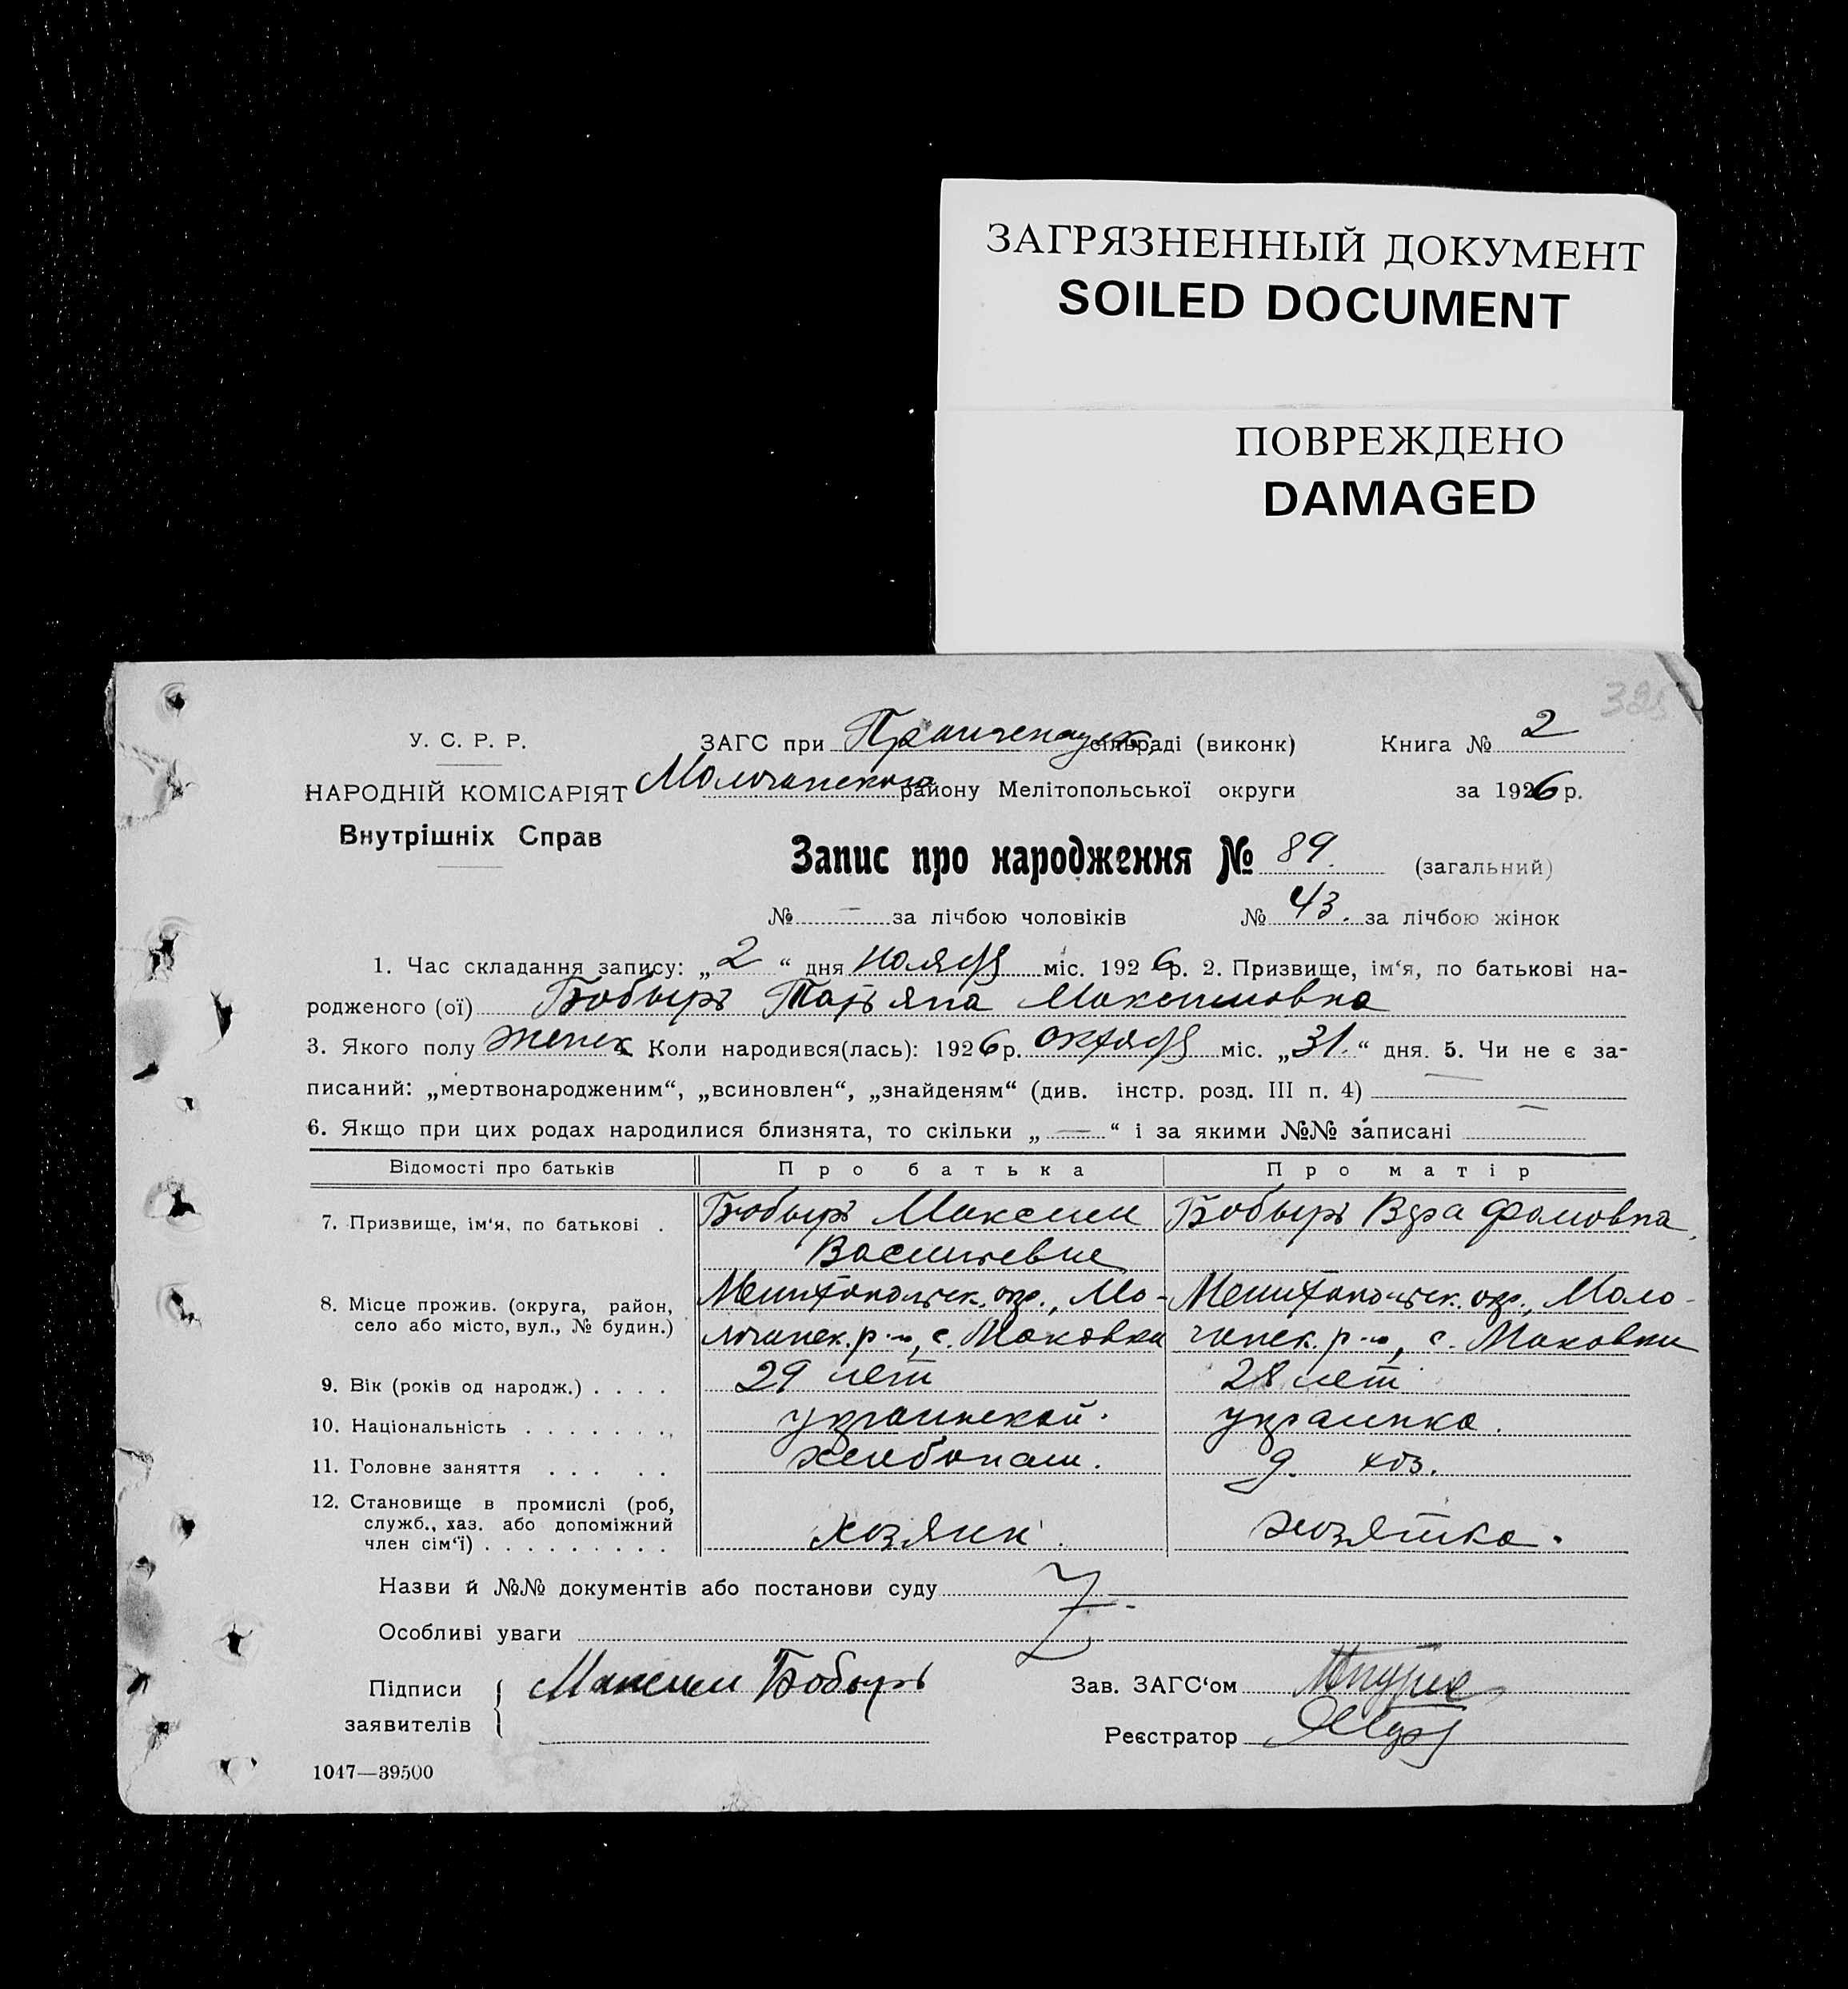 ЗАГРЯЗНЕННЫЙ ДОКУМЕНТ
SOILED DOCUMENT
ПОВРЕЖДЕНО
DAMAGED
У. С. Р. Р.
НАРОДНІЙ КОМІСАРІЯТ
Внутрішніх Справ
ЗАГС при сільраді (виконк) Книга № 2
Молочанского району Мелітопольської округи за 1926 р.
Запис про народження № 89. (загальний)
№ — за лічбою чоловіків № 43. за лічбою жінок
1. Час складання запису: „2“ дня ноября міс. 1926 р. 2. Призвище, ім‘я, по батькові на-
родженого (ої) Бобырь Татьяна Максимовна
3. Якого полу женск Коли народився(лась): 1926 р. октября міс. „31.“ дня. 5. Чи не є за-
писаний: „мертвонародженим“, „всиновлен“, „знайденям“ (див. інстр. розд. III п. 4) —
6. Якщо при цих родах народилися близнята, то скільки „—“ і за якими №№ записані —
Відомості про батьків Про батька Про матір
7. Призвище, ім‘я, по батькові . Бобырь Максим Бобырь Вера Фомовна
Васильевич
8. Місце прожив. (округа, район, Мелитопольск. окр., Мо- Мелитопольск. окр., Моло-
село або місто, вул., № будин.) лочанск. р-н, с. Маковки чанск. р-н, с. Маковки
9. Вік (років од народж.) . . . . 29 лет 28 лет
10. Національність . . . . . . . украинской. украинка.
11. Головне заняття . . . . . хлебопаш. д. хоз.
12. Становище в промислі (роб,
служб., хаз. або допоміжний
член сім‘ї) . . . . . . . . . хозяин. хозяйка.
Назви й №№ документів або постанови суду
Особливі уваги
Підписи Максим Бобырь Зав. ЗАГС‘ом
заявителів
Реєстратор
1047—39500